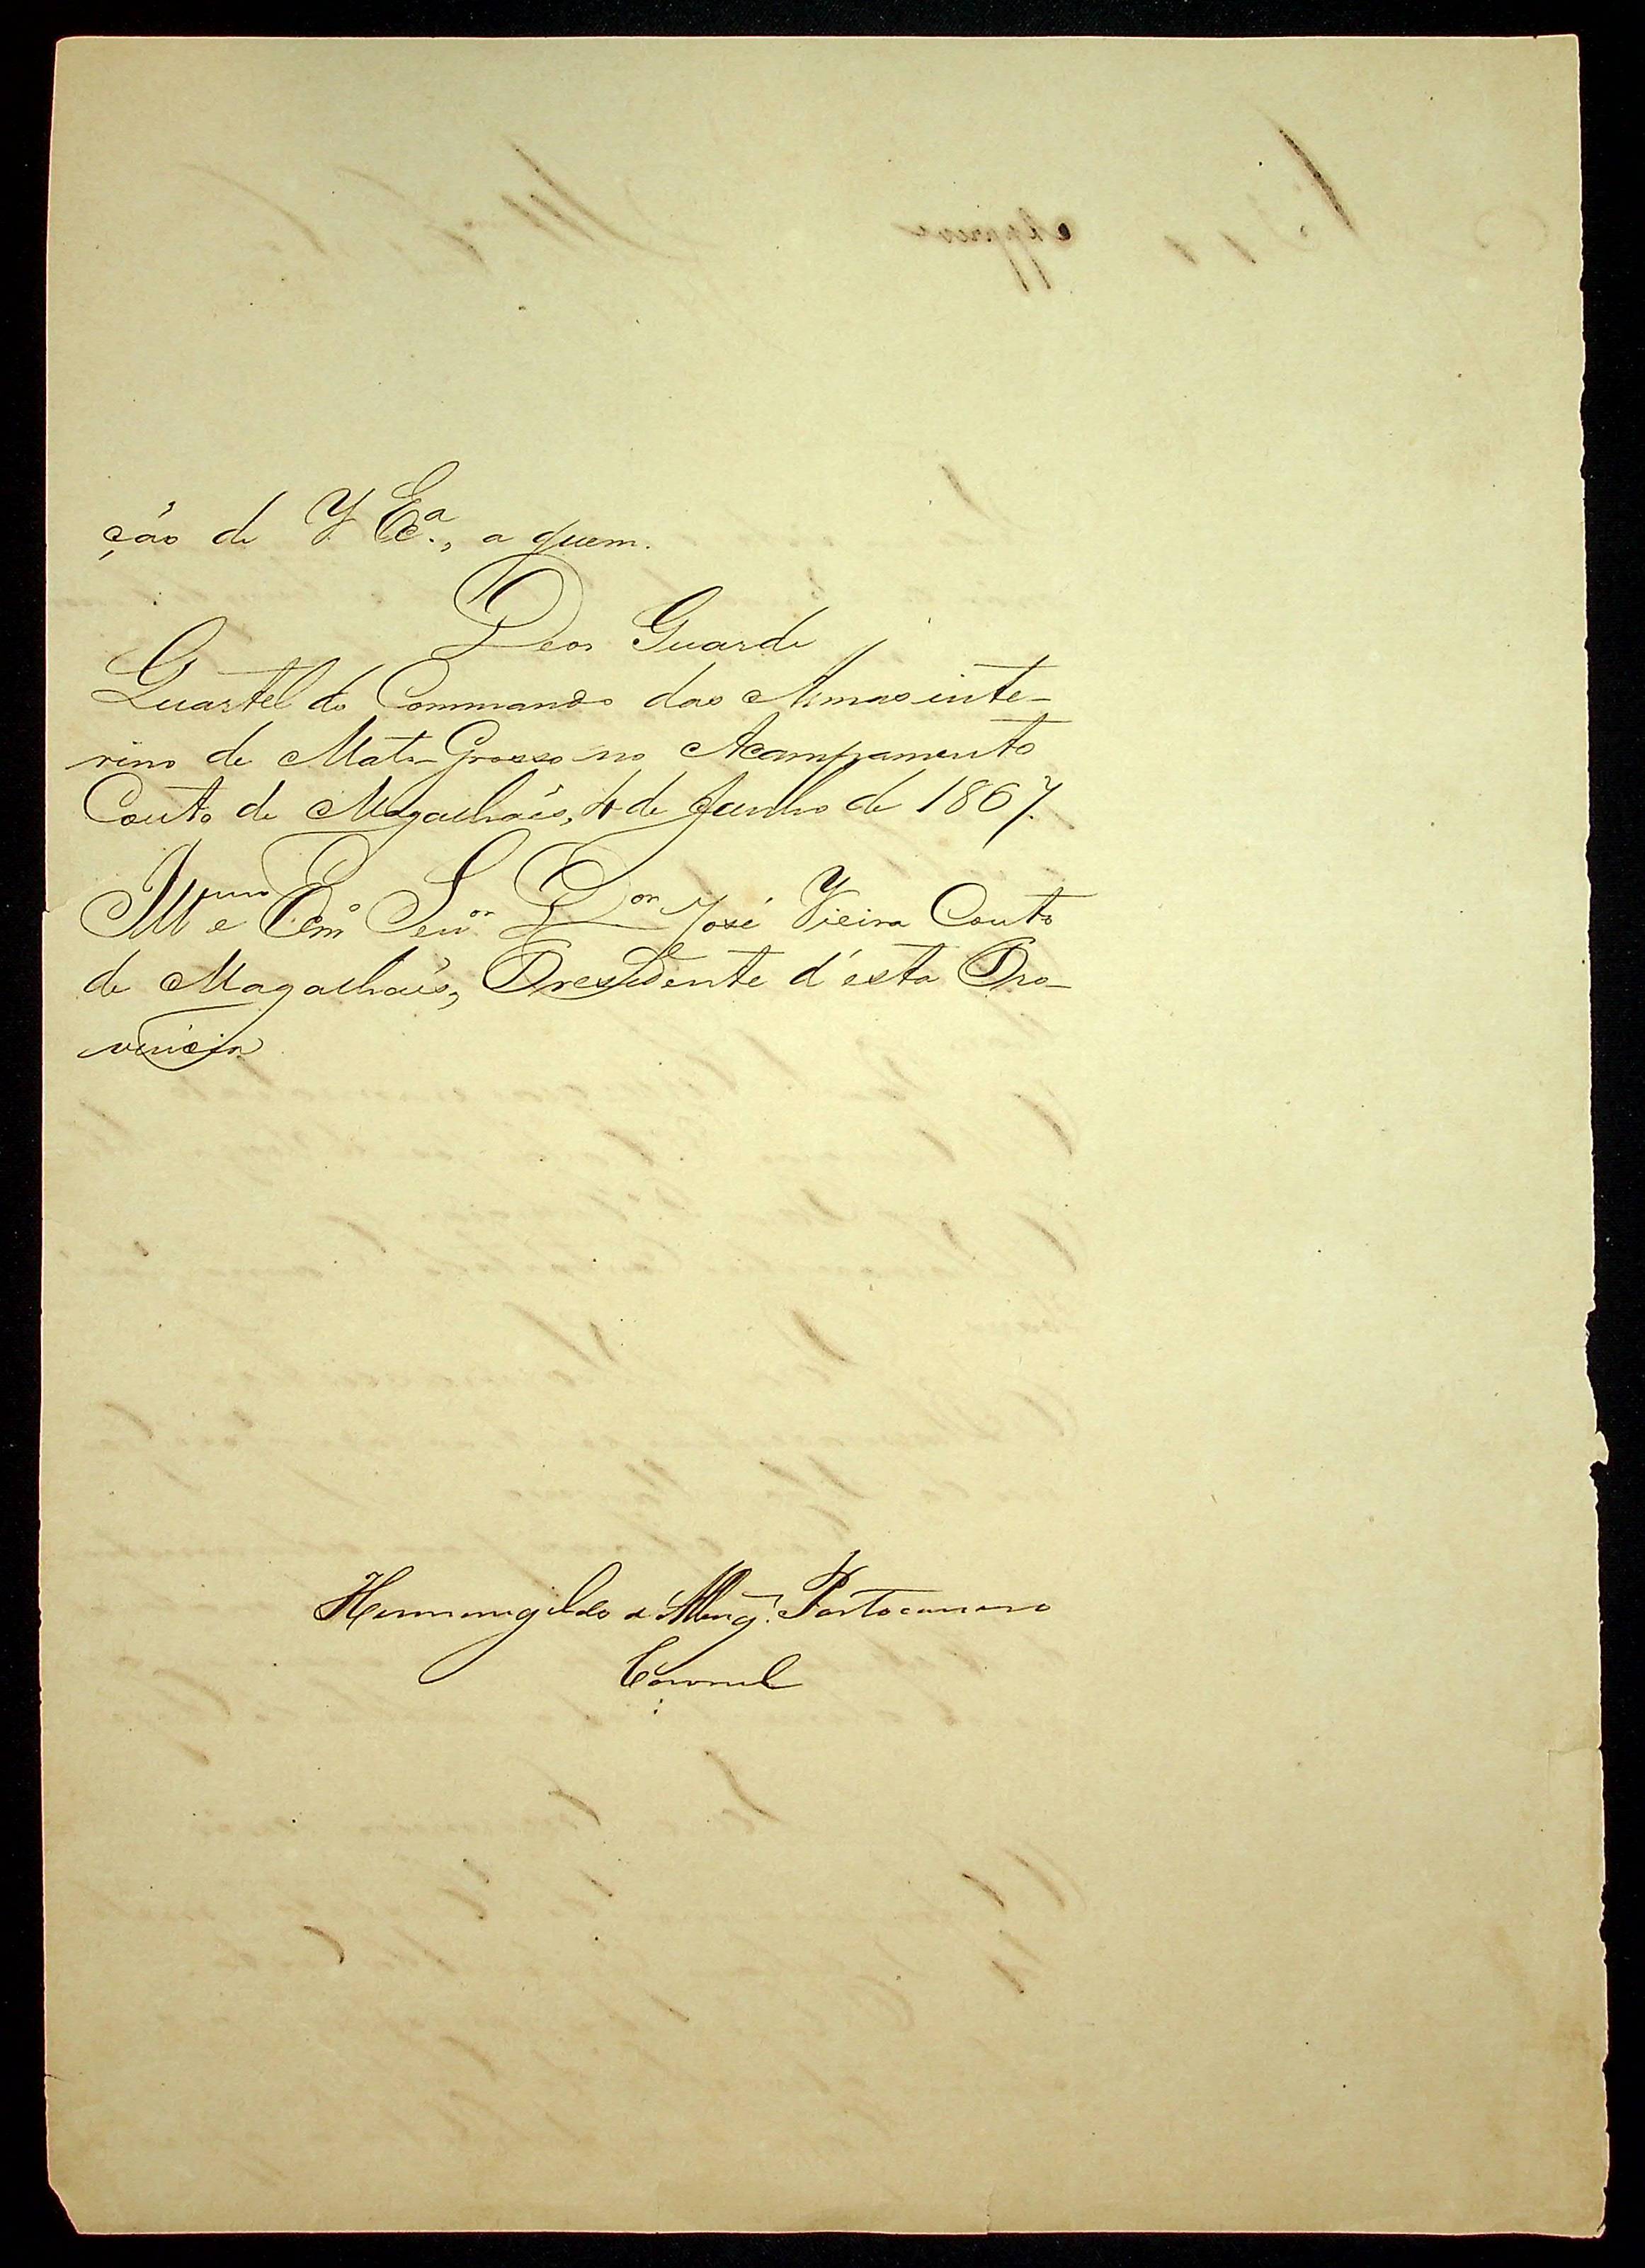 ção de V. Ex.ª, a quem.
Deos Guarde
Quartel do Commando das Armas inte-
rino de Mato-Grosso no Acampamento
Couto de Magalhães, 4 de Junho de 1867.
Illmo e Exmo Senor Dor José Vieira Couto
de Magalhães, Presidente d'esta Pro-
vincia
Hermenegildo d'Albuq. Portocarrero
Coronel